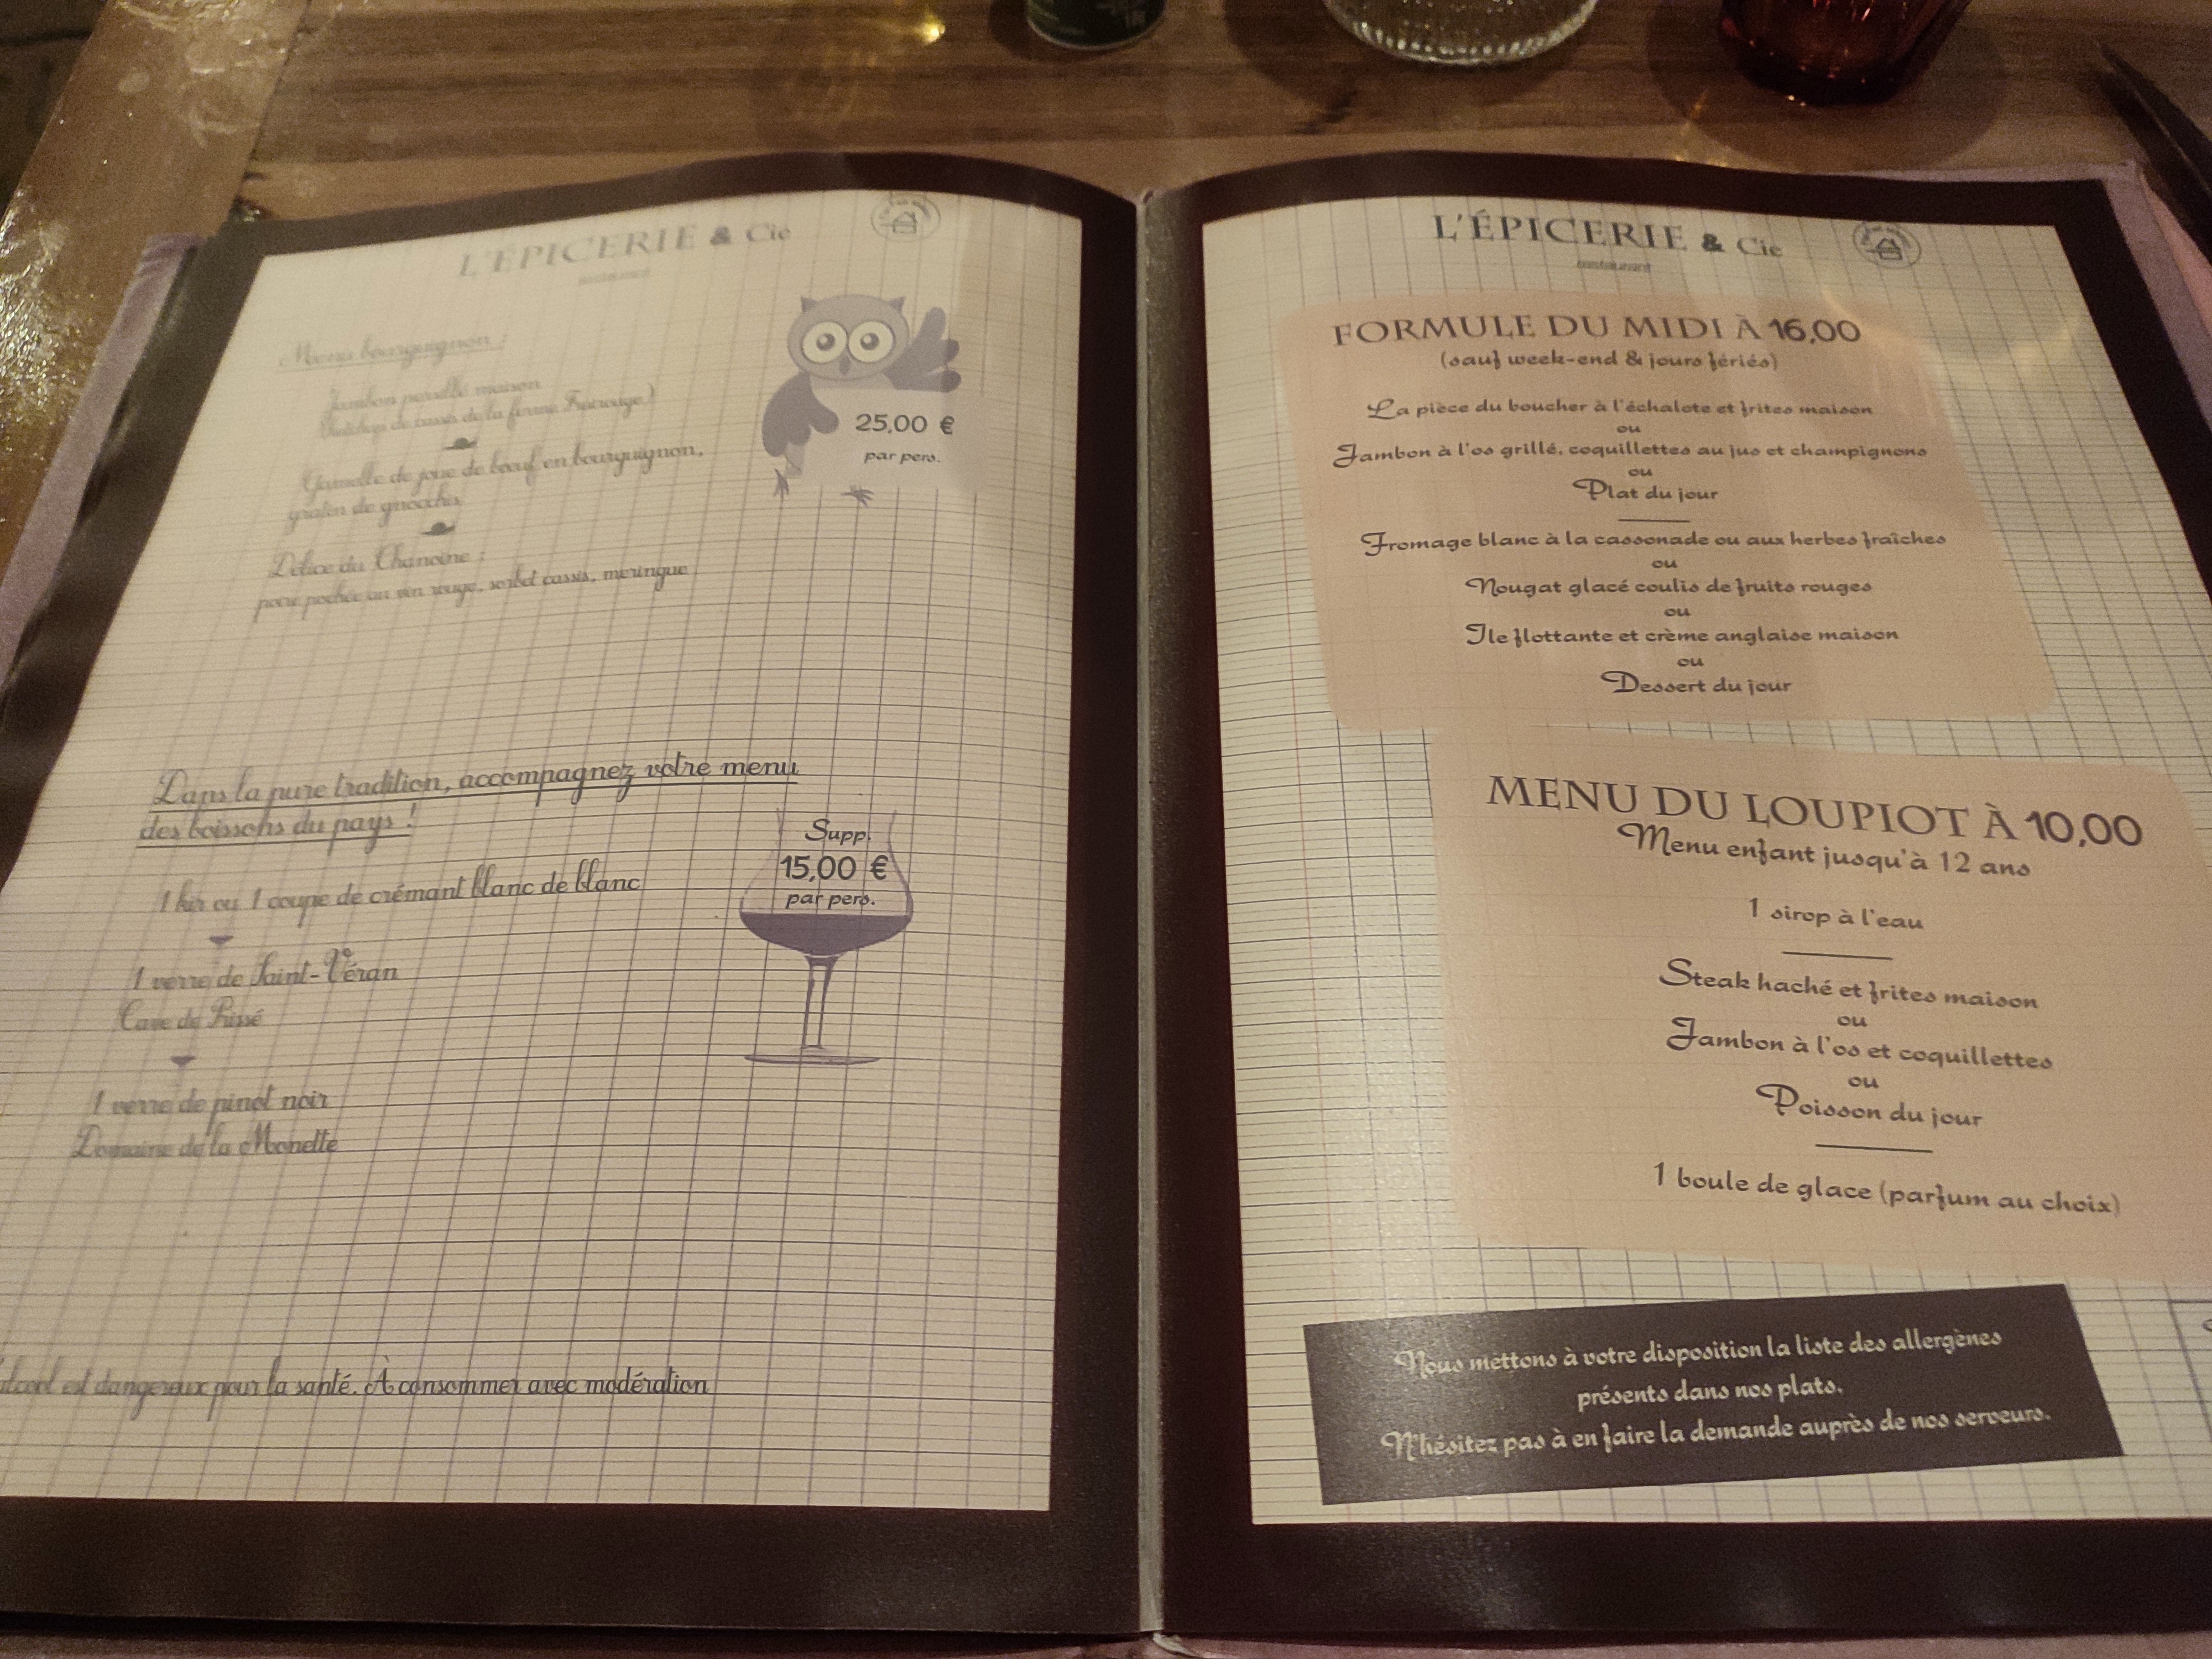 L'ÉPICERIE & Cie
restaurant
Menu bourguignon :
Jambon persillé maison
de cassis de la ferme Fruirouge)
25,00 €
par pers.
Gamelle de joue de bœuf en bourguignon,
gratin de gnocchis
Délice du Chanoine :
poire pochée au vin rouge, sorbet cassis, meringue
Dans la pure tradition, accompagnez votre menu
des boissons du pays !
Supp.
15,00 €
par pers.
1 kir ou 1 coupe de crémant blanc de blanc
1 verre de Saint-Véran
Cave de Prissé
1 verre de pinot noir
Domaine de la Monette
alcool est dangereux pour la santé. À consommer avec modération
L'ÉPICERIE & Cie
restaurant
FORMULE DU MIDI À 16,00
(sauf week-end & jours fériés)
La pièce du boucher à l'échalote et frites maison
ou
Jambon à l'os grillé, coquillettes au jus et champignons
ou
Plat du jour
Fromage blanc à la cassonade ou aux herbes fraîches
ou
Nougat glacé coulis de fruits rouges
ou
Ile flottante et crème anglaise maison
ou
Dessert du jour
MENU DU LOUPIOT À 10,00
Menu enfant jusqu'à 12 ans
1 sirop à l'eau
Steak haché et frites maison
ou
Jambon à l'os et coquillettes
ou
Poisson du jour
1 boule de glace (parfum au choix)
Nous mettons à votre disposition la liste des allergènes
présents dans nos plats.
N'hésitez pas à en faire la demande auprès de nos serveurs.